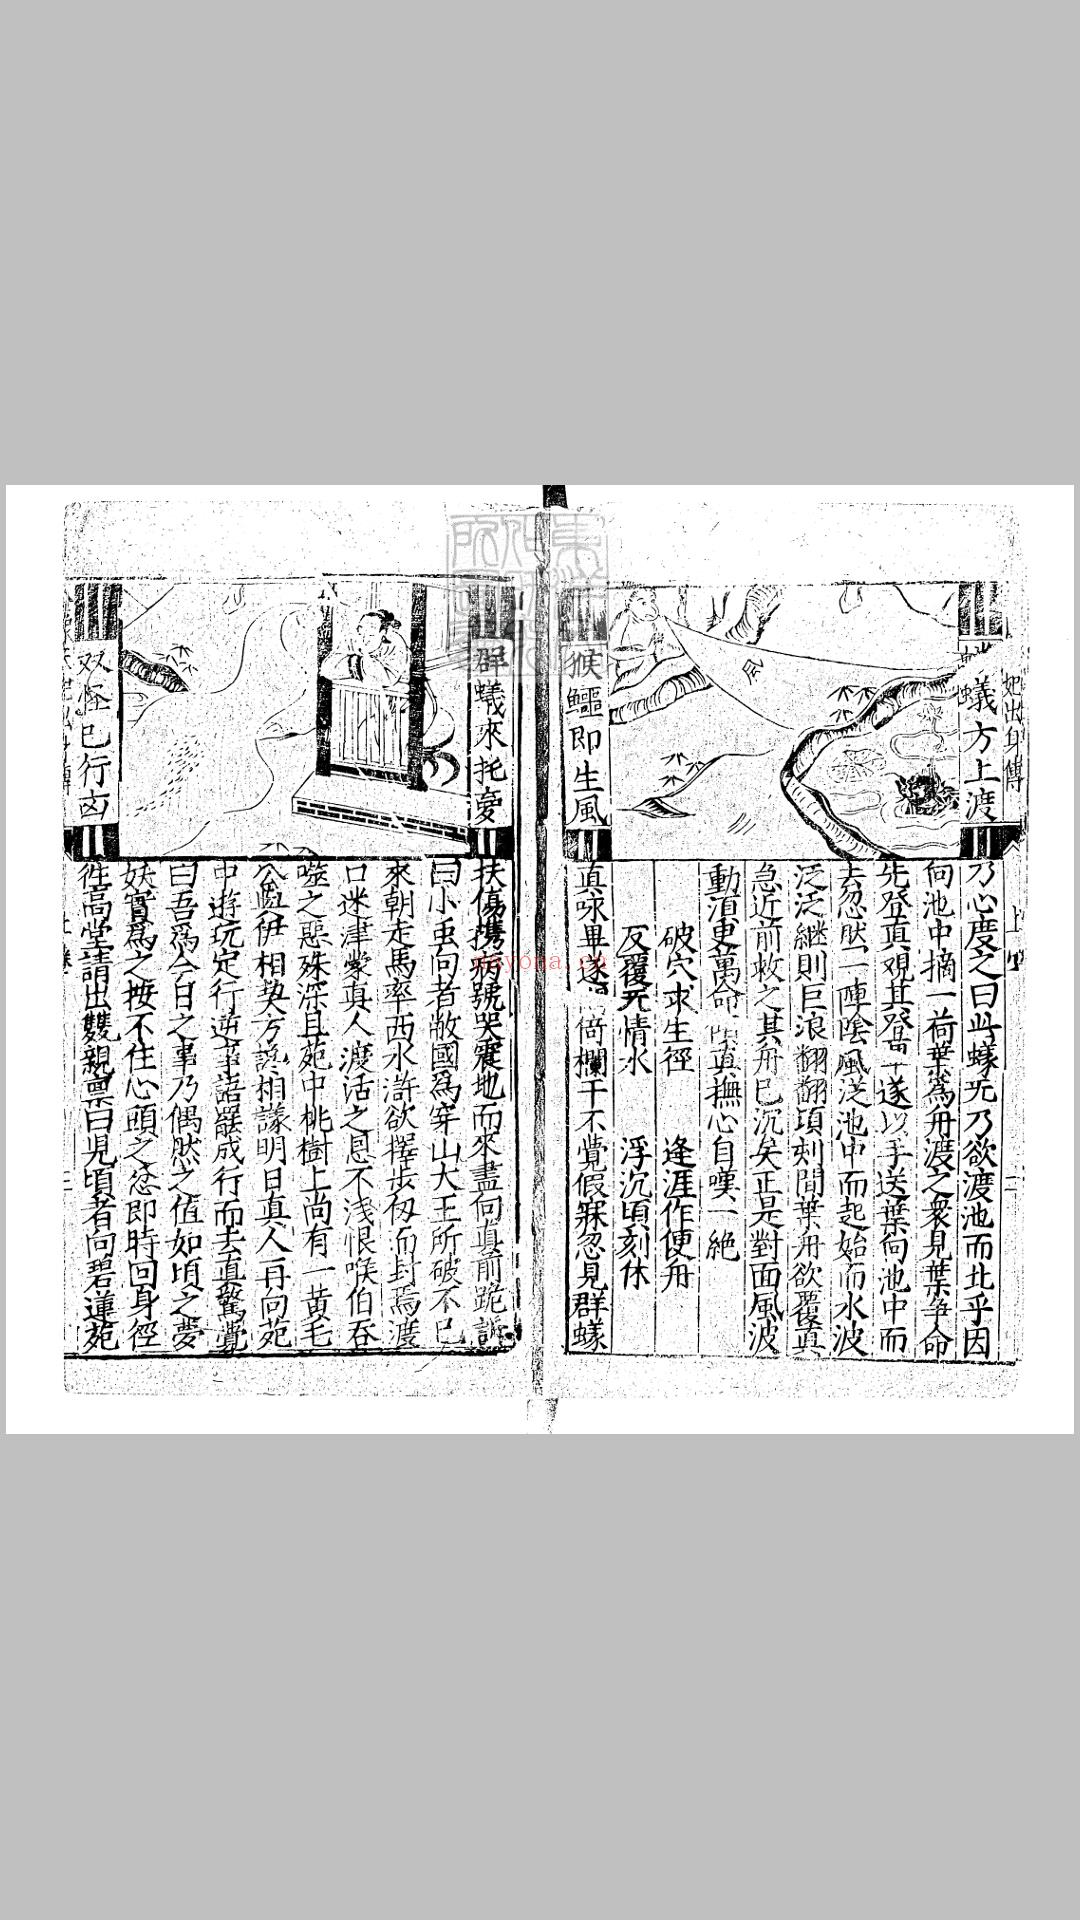 妃出身傳
上
蟻方上渡
猴鱷即生風
風
乃心度之曰此蟻旡乃欲渡池而北乎因
向池中摘一荷葉為舟渡之衆見葉争命
先登真覌其登遂以手送葉向池中而
去忽然一陣陰風從池中而起始而水波
泛泛継則巨浪翻翻頃刻間葉舟欲覆真
急近前救之其舟已沉矣正是對面風波
動湏更萬命真撫心自嘆一絶
破穴求生徑 逢涯作便舟
反覆旡情水 浮沉頃刻休
真咏畢遂倚欄干不覺假寐忽見群蟻
群蟻來托夣
双怪已行凶
扶傷携病號哭震地而來盡向真前跪訴
曰小虫向者敝國為穿山大王所破不已
來朝走馬率西水滸欲擇步仭而封焉渡
口迷津蒙真人渡活之恩不淺恨喉伯吞
噬之惡殊深且苑中桃樹上尚有一黄毛
公與伊相契方議明日真人再向苑
中遊玩定行逆事諸羆成行而去真驚覺
曰吾為今日之事乃偶然之值如頃之夢
妖實為之按不住心頭之忿即時回身徑
徃高堂請出雙親禀曰児頃者向碧蓮苑